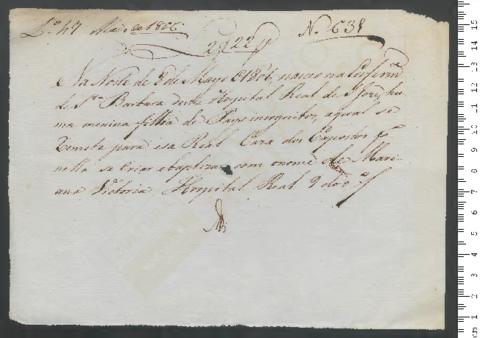 Lº 47 Maio de 1806 Nº 631
2922
Na Noite de 8 de Mayo d 1806, nasceo na Enferm.ª
de S.ta Barbara deste Hospital Real de S. Joze, hu
ma menina filha de Pays incognitos, a qual se
Remete para essa Real Caza dos Expostos p.ª
nella se criar e baptizar com o nome de Mari
ana Victoria Hospital Real 9 do d.º